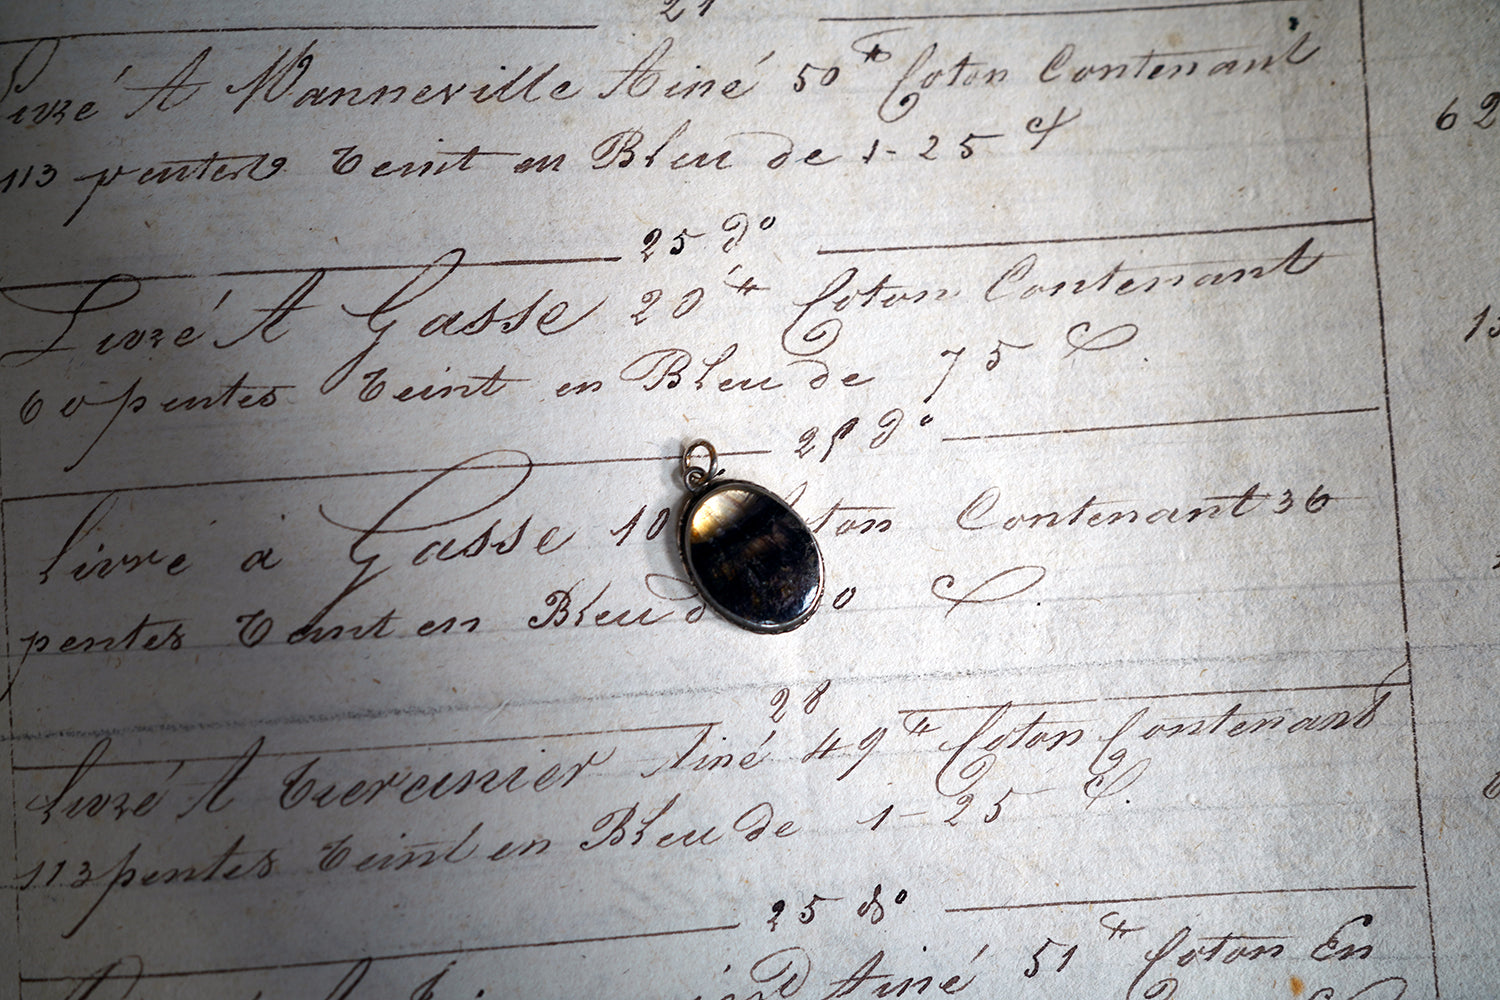 21
Livré A Manneville Ainé 50 # Coton Contenant
113 pentes teint en Bleu de 1-25 c 62
25 do
Livré A Gasse 20 # Coton Contenant
60 pentes teint en Bleu de 75 c 15
25 do
Livre a Gasse 10 Coton Contenant 36
pentes teint en Bleu d 0 c
28
Livré A Ainé 49 # Coton Contenant
113 pentes teint en Bleu de 1-25 c
25 do
Ainé 51 # Coton En